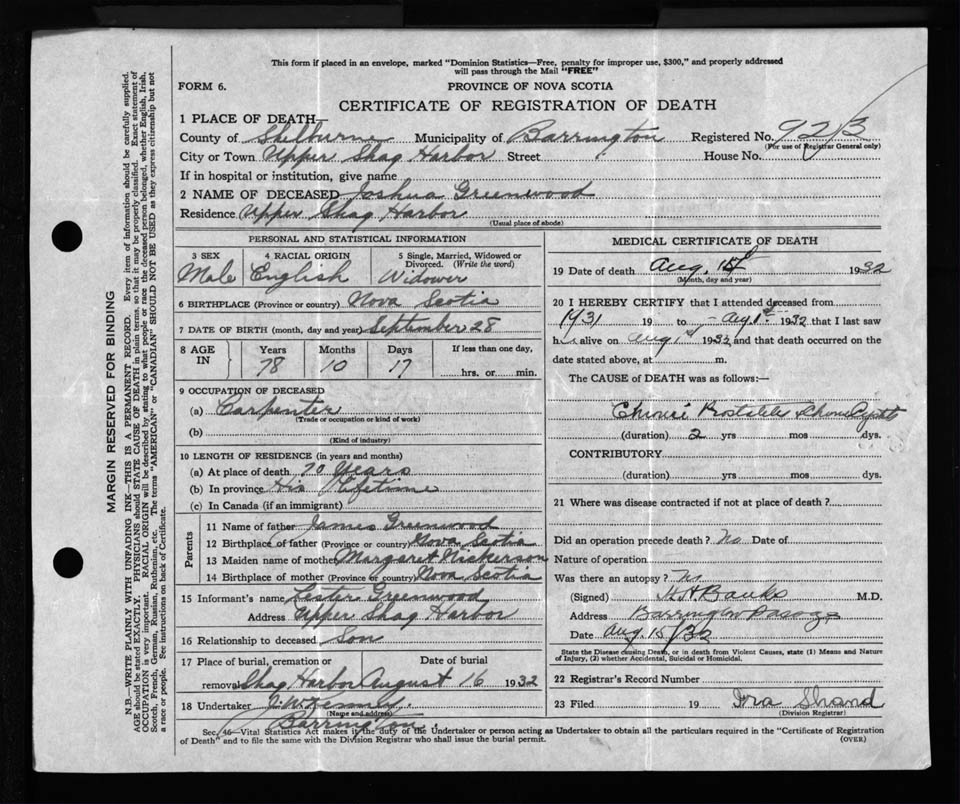 This form if placed in an envelope, marked "Dominion Statistics—Free, penalty for improper use, $300," and properly addressed
will pass through the Mail "FREE"
FORM 6.
PROVINCE OF NOVA SCOTIA
CERTIFICATE OF REGISTRATION OF DEATH
1 PLACE OF DEATH—
County of Shelburne Municipality of Barrington Registered No. 9213
(For use of Registrar General only)
City or Town Upper Shag Harbor Street House No.
If in hospital or institution, give name
2 NAME OF DECEASED Joshua Greenwood
Residence Upper Shag Harbor
(Usual place of abode)
PERSONAL AND STATISTICAL INFORMATION
3 SEX 4 RACIAL ORIGIN 5 Single, Married, Widowed or Divorced. (Write the word)
Male English Widower
6 BIRTHPLACE (Province or country) Nova Scotia
7 DATE OF BIRTH (month, day and year) September 28
8 AGE IN Years Months Days If less than one day,
78 10 17 hrs. or min.
9 OCCUPATION OF DECEASED
(a) Carpenter
(Trade or occupation or kind of work)
(b)
(Kind of industry)
10 LENGTH OF RESIDENCE (in years and months)
(a) At place of death 70 Years
(b) In province His Lifetime
(c) In Canada (if an immigrant)
Parents
11 Name of father James Greenwood
12 Birthplace of father (Province or country) Nova Scotia
13 Maiden name of mother Margaret Nickerson
14 Birthplace of mother (Province or country) Nova Scotia
15 Informant's name Lester Greenwood
Address Upper Shag Harbor
16 Relationship to deceased Son
17 Place of burial, cremation or removal Date of burial
Shag Harbor August 16 1932
18 Undertaker J. W.
(Name and address)
Barrington
MEDICAL CERTIFICATE OF DEATH
19 Date of death Aug. 15 1932
(Month, day and year)
20 I HEREBY CERTIFY that I attended deceased from
1931 19 to Aug 1st 1932 that I last saw
h alive on Aug 1st 1932 and that death occurred on the
date stated above, at m.
The CAUSE of DEATH was as follows:—
(duration) 2 yrs mos dys.
CONTRIBUTORY
(duration) yrs mos dys.
21 Where was disease contracted if not at place of death?
Did an operation precede death? No Date of
Nature of operation
Was there an autopsy? No
(Signed) H H Banks M.D.
Address Barrington Passage
Date Aug 15/32
State the Disease causing Death, or in death from Violent Causes, state (1) Means and Nature
of Injury, (2) whether Accidental, Suicidal or Homicidal.
22 Registrar's Record Number
23 Filed 19 Ira Shand
(Division Registrar)
Sec. 46—Vital Statistics Act makes it the duty of the Undertaker or person acting as Undertaker to obtain all the particulars required in the "Certificate of Registration
of Death" and to file the same with the Division Registrar who shall issue the burial permit.
(OVER)
MARGIN RESERVED FOR BINDING
N.B.—WRITE PLAINLY WITH UNFADING INK—THIS IS A PERMANENT RECORD. Every item of information should be carefully supplied.
AGE should be stated EXACTLY. PHYSICIANS should STATE CAUSE OF DEATH in plain terms, so that it may be properly classified. Exact statement of
OCCUPATION is very important. RACIAL ORIGIN will be described by stating to what people or race the deceased person belonged, whether English, Irish,
Scotch, French, German, Russian, Ruthenian, etc. The terms "AMERICAN" or "CANADIAN" SHOULD NOT BE USED as they express citizenship but not
a race or people. See instructions on back of Certificate.